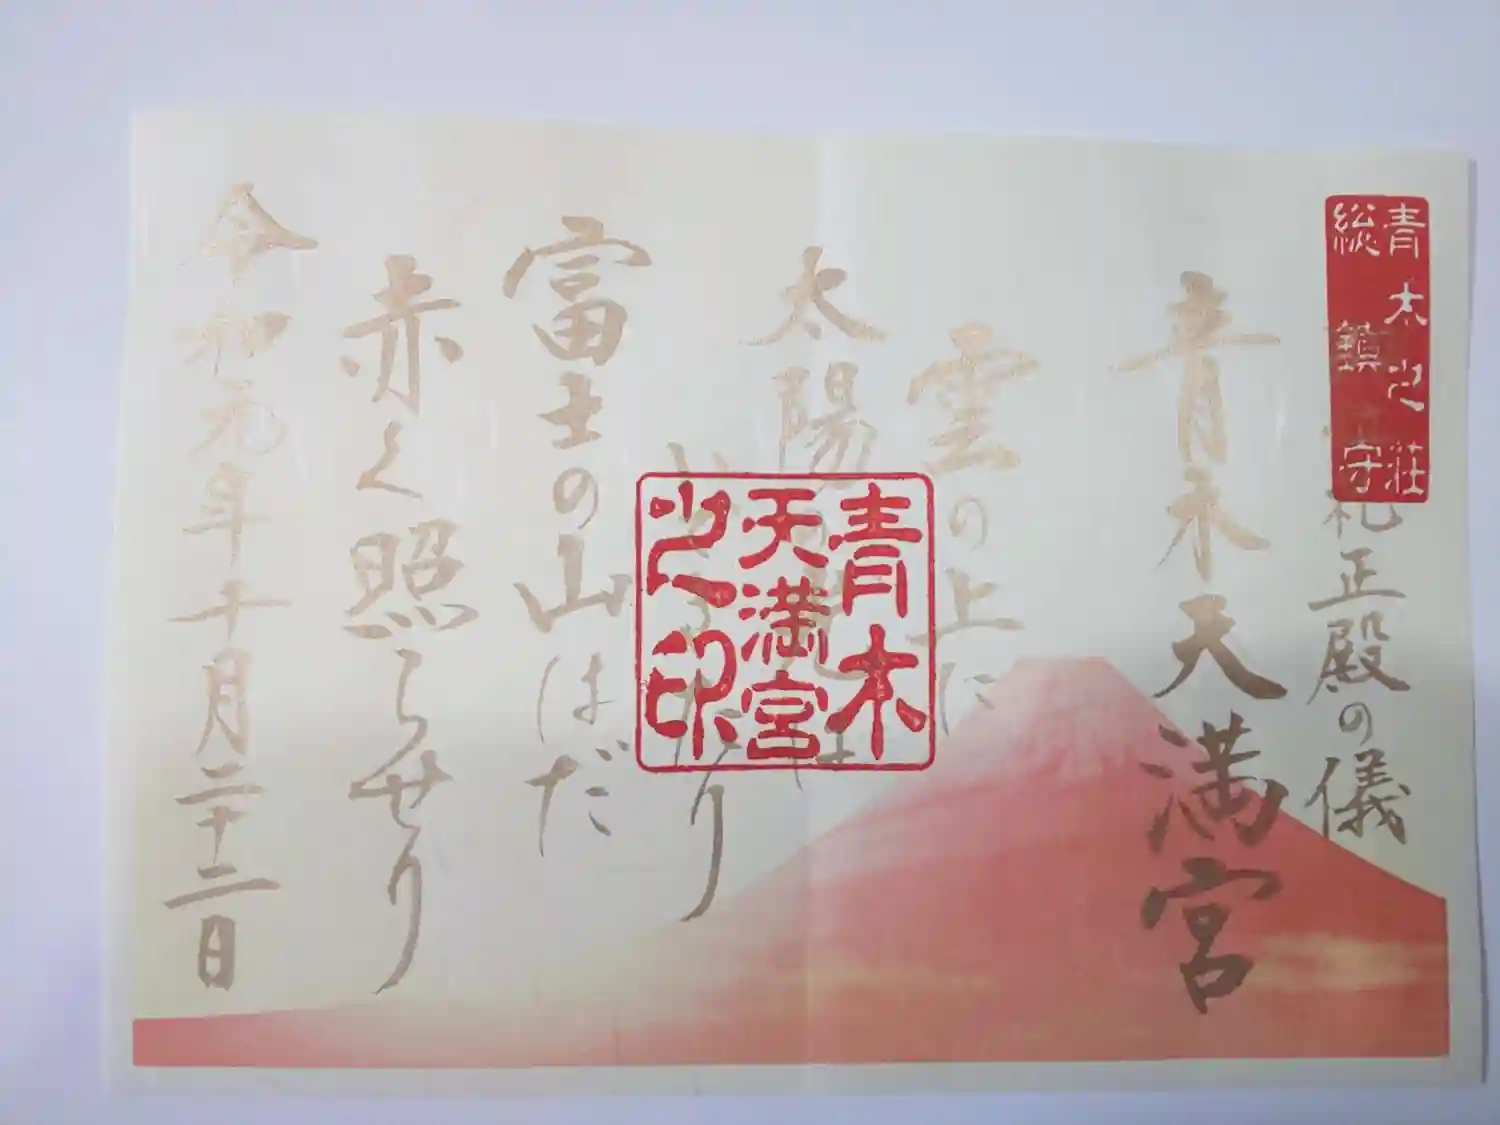 青木之荘
総鎮守
礼正殿の儀
青木天満宮
雲の上に
太陽の光は
いできたり
富士の山はだ
赤く照らせり
令和元年十月二十二日
青木
天満宮
之印